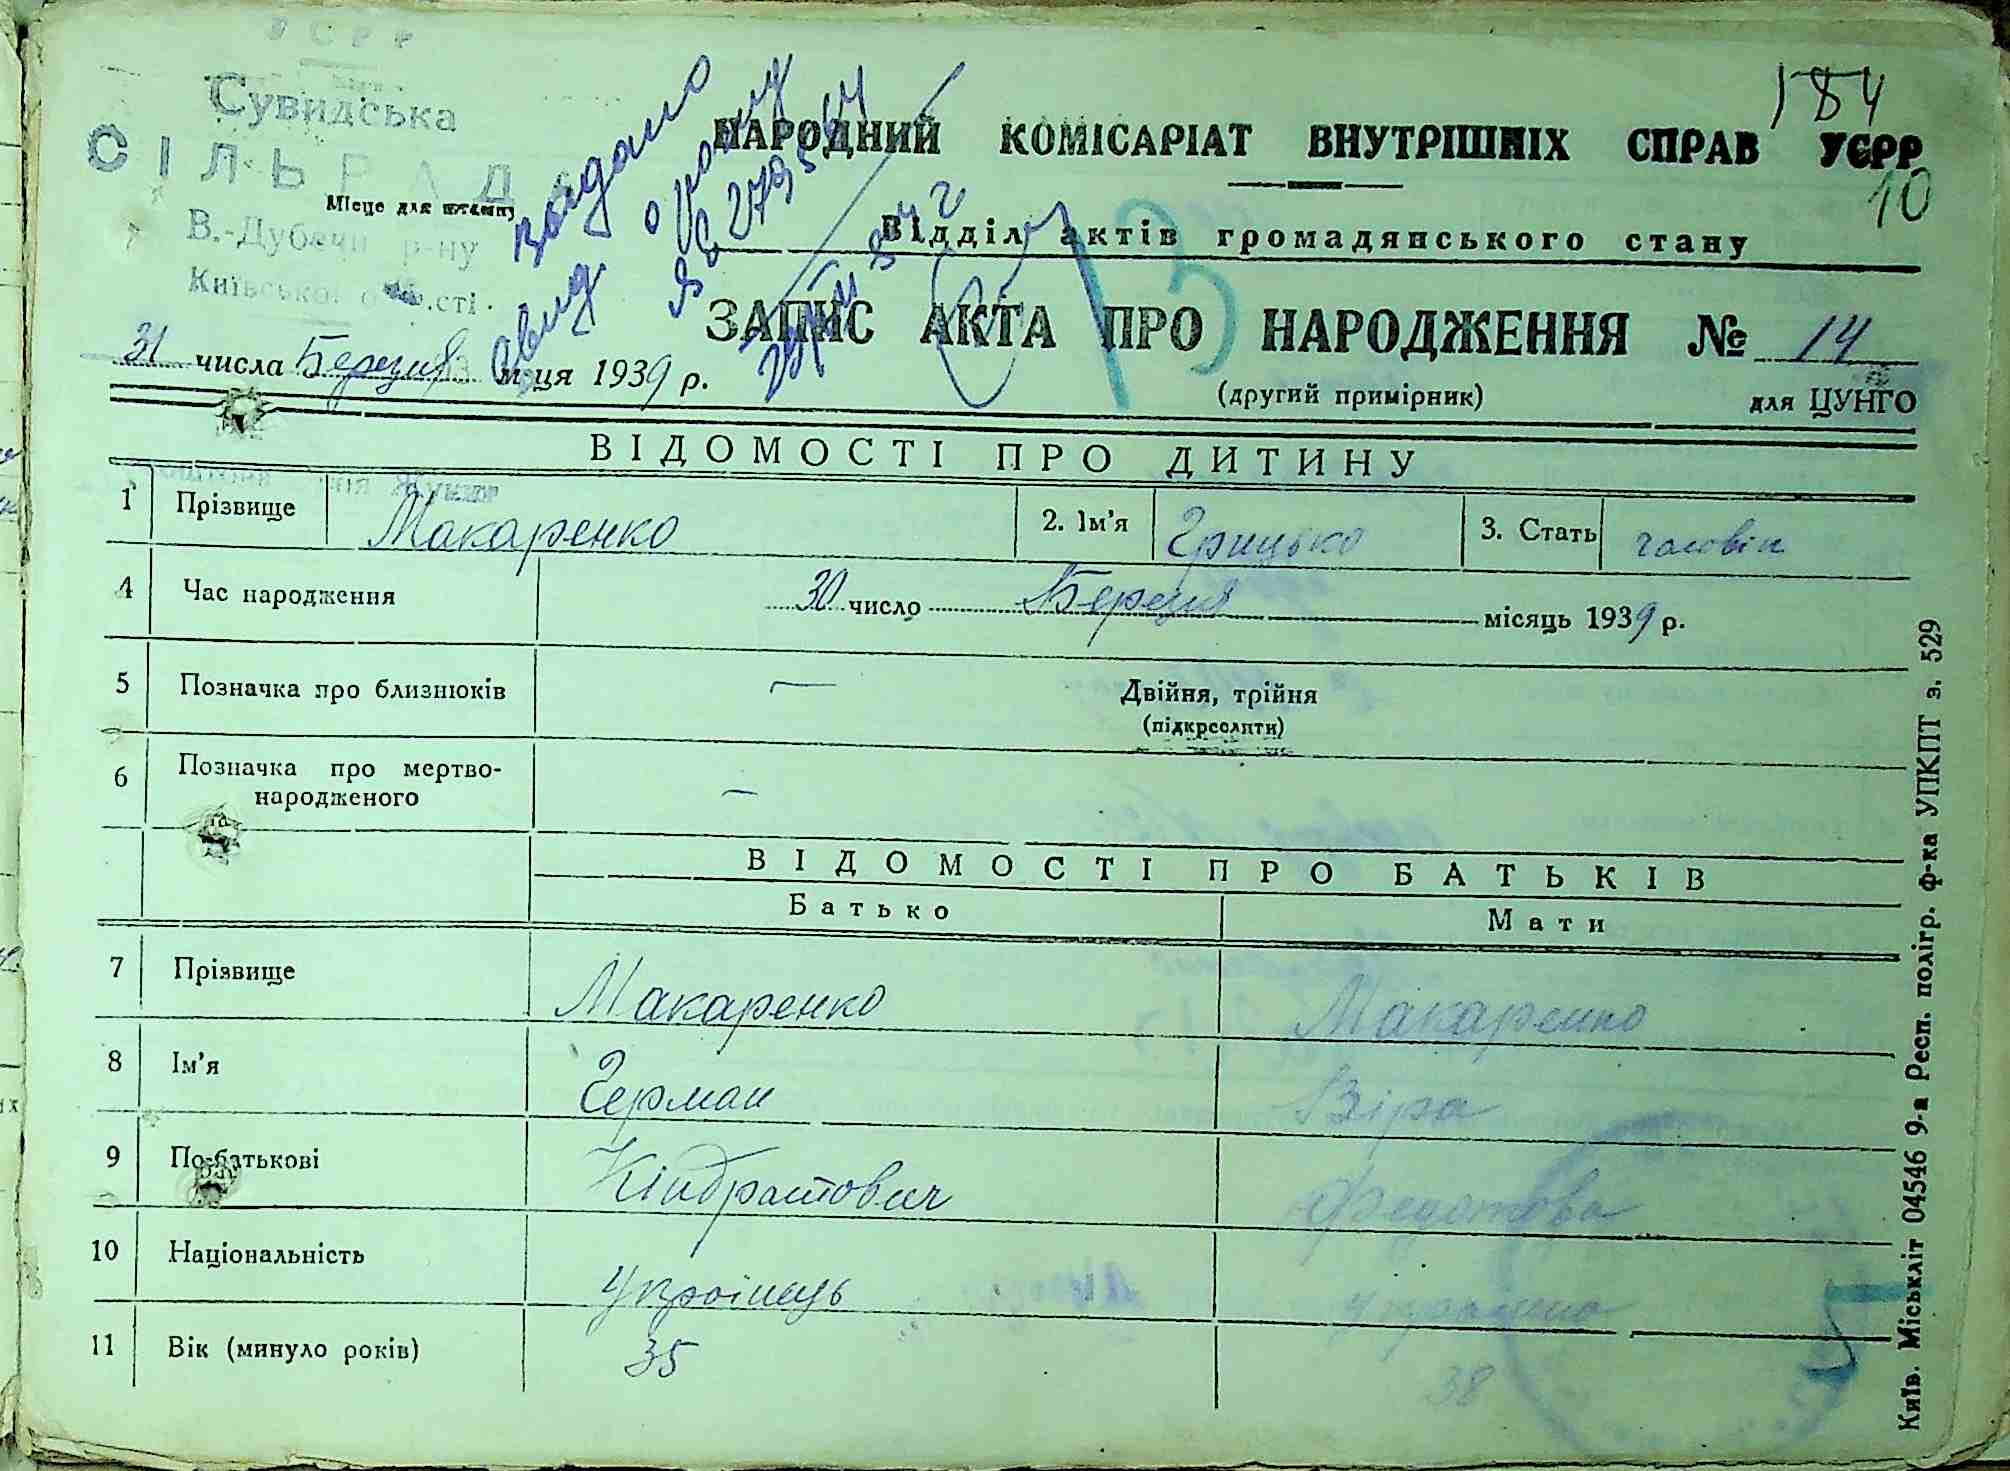 УСРР
Сувидська
СІЛЬРАДА
Місце для штампу
В.-Дубечн. р-ну
Київської області
видано
НАРОДНИЙ КОМІСАРІАТ ВНУТРІШНІХ СПРАВ УСРР
184
10
Відділ актів громадянського стану
ЗАПИС АКТА ПРО НАРОДЖЕННЯ № 14
31 числа Березня м-ця 1939 р.
(другий примірник)
для ЦУНГО
ВІДОМОСТІ ПРО ДИТИНУ
1 Прізвище Макаренко 2. Ім'я Грицько 3. Стать чоловіч
4 Час народження 30 число Березня місяць 1939 р.
5 Позначка про близнюків — Двійня, трійня
(підкреслити)
6 Позначка про мертво-
народженого —
ВІДОМОСТІ ПРО БАТЬКІВ
Батько Мати
7 Прізвище Макаренко Макаренко
8 Ім'я Герман Віра
9 По-батькові Кіндратович Федотова
10 Національність українець українка
11 Вік (минуло років) 35 38
Київ. Міськліт 04546 9-а Респ. полігр. ф-ка УПКПТ з. 529